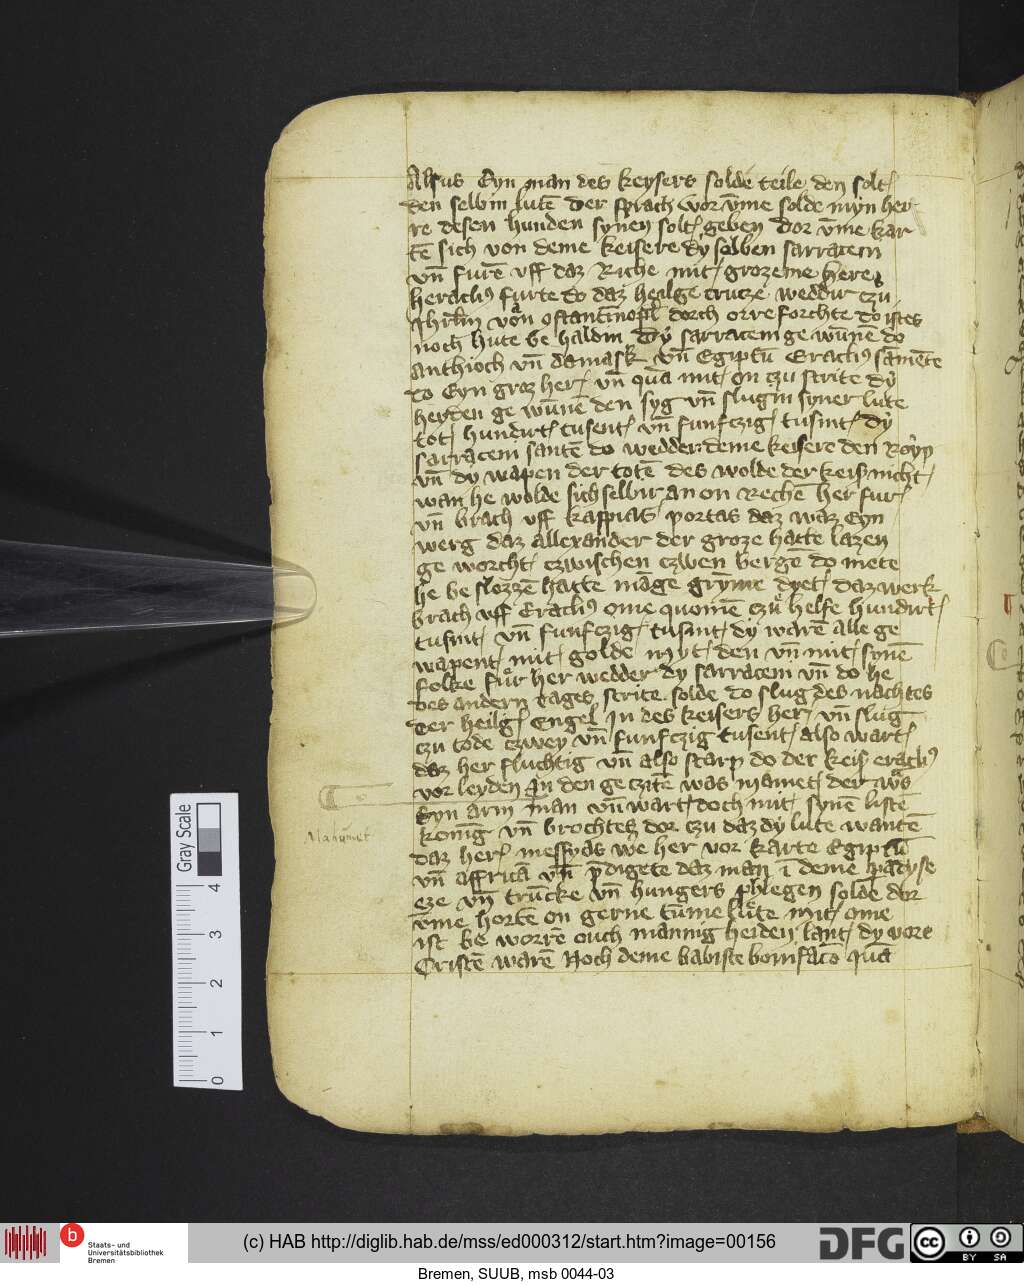 Alsus Eyn man des keysers solde teile den solt
den selbin lutē Der sprach wor v̄me solde myn her
re desen hunden synen solt geben dor v̄me kar
tē sich von deme keisere dy selben sarracem
vn̄ furē vff daz Riche mit grozeme here
heracliꝰ furte do daz heilge crucze weddir czu
Jhrl̄m von 9stantinopil dorch orre forchte do istes
noch hute be haldin Dy sarracem ge wūnē do
Anthioch vn̄ damask vn̄ Egiptū Eracliꝰ sāmēte
do Eyn groz her vn̄ quā mit on czu strite dy
heyden ge wūnē den syg vn̄ slugin syner lute
tot hundirt tusent vn̄ funfczig tusint dy
sarracem santē do wedder deme keisere den Royp
vn̄ dy wapen der totē des wolde der keis nicht
wan he wolde sich selbir an on Rechē her fur
vn̄ brach vff kaspias portas daz waz Eyn
werg daz allexander der groze hatte lazen
ge worcht czwischen czwen bergē do mete
he be slozzē hatte māge grȳme dyet daz werk
brach vff Eracliꝰ ome quomē czu helfe hundirt
tusint vn̄ funfczig tusint dy warē alle ge
wapent mit golde myt den vn̄ mit synē
folke fur her wedder dy sarracem vn̄ do he
des andern tages strite solde do slug des nachtes
der heilge Engel in des keisers her vn̄ slug
czu tode czwey vn̄ funfczig tusent also wart
daz her fluchtig vn̄ also starp do der keis eracliꝰ
vor leyden In den ge czitē was mamet der wͦs
Eyn arm man vn̄ wart doch mit synē listē
Mahūmet
konīg vn̄ brochtes dor czu daz dy lute wantē
daz her messyas we her vor karte Egiptū
vn̄ affricā vn̄ p̄digete daz man ī deme padyse
eze vn̄ trūcke vn̄ hungers phlegen solde dor
v̄me hortē on gerne tūme lute mit ome
ist be worrē ouch mannig heiden lant dy vore
Cristē warē Noch deme babiste bonifacō quā
Gray Scale
4
3
2
1
0
b
Staats- und
Universitätsbibliothek
Bremen
(c) HAB http://diglib.hab.de/mss/ed000312/start.htm?image=00156
DFG
cc
BY SA
Bremen, SUUB, msb 0044-03